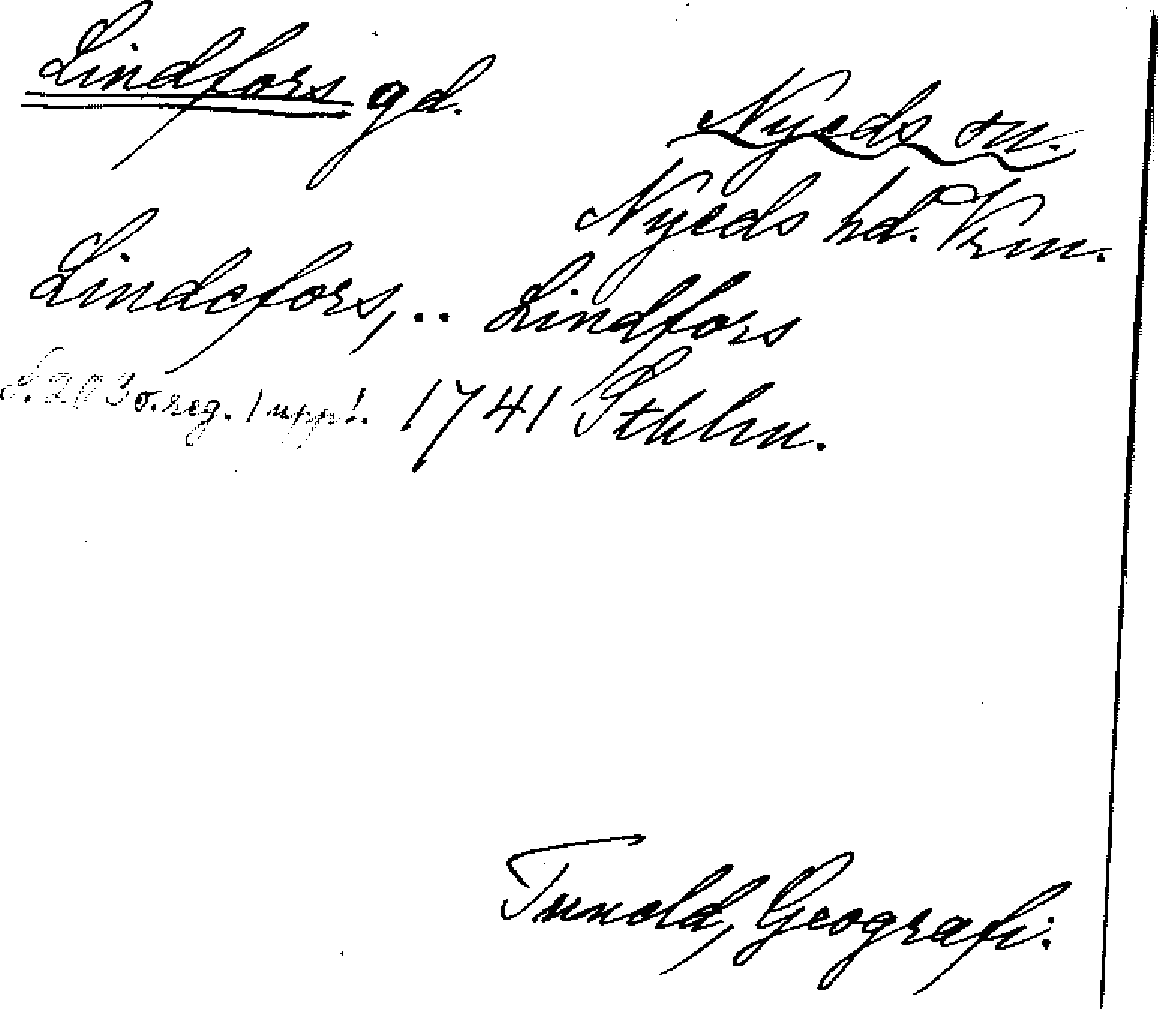 Lindfors gd.
Nyeds sn.
Nyeds hd. Vrm.
Lindefors, .. Lindfors
S. 203 o. reg. 1 uppl. 1741 Sthlm.
Tuneld, Geografi.